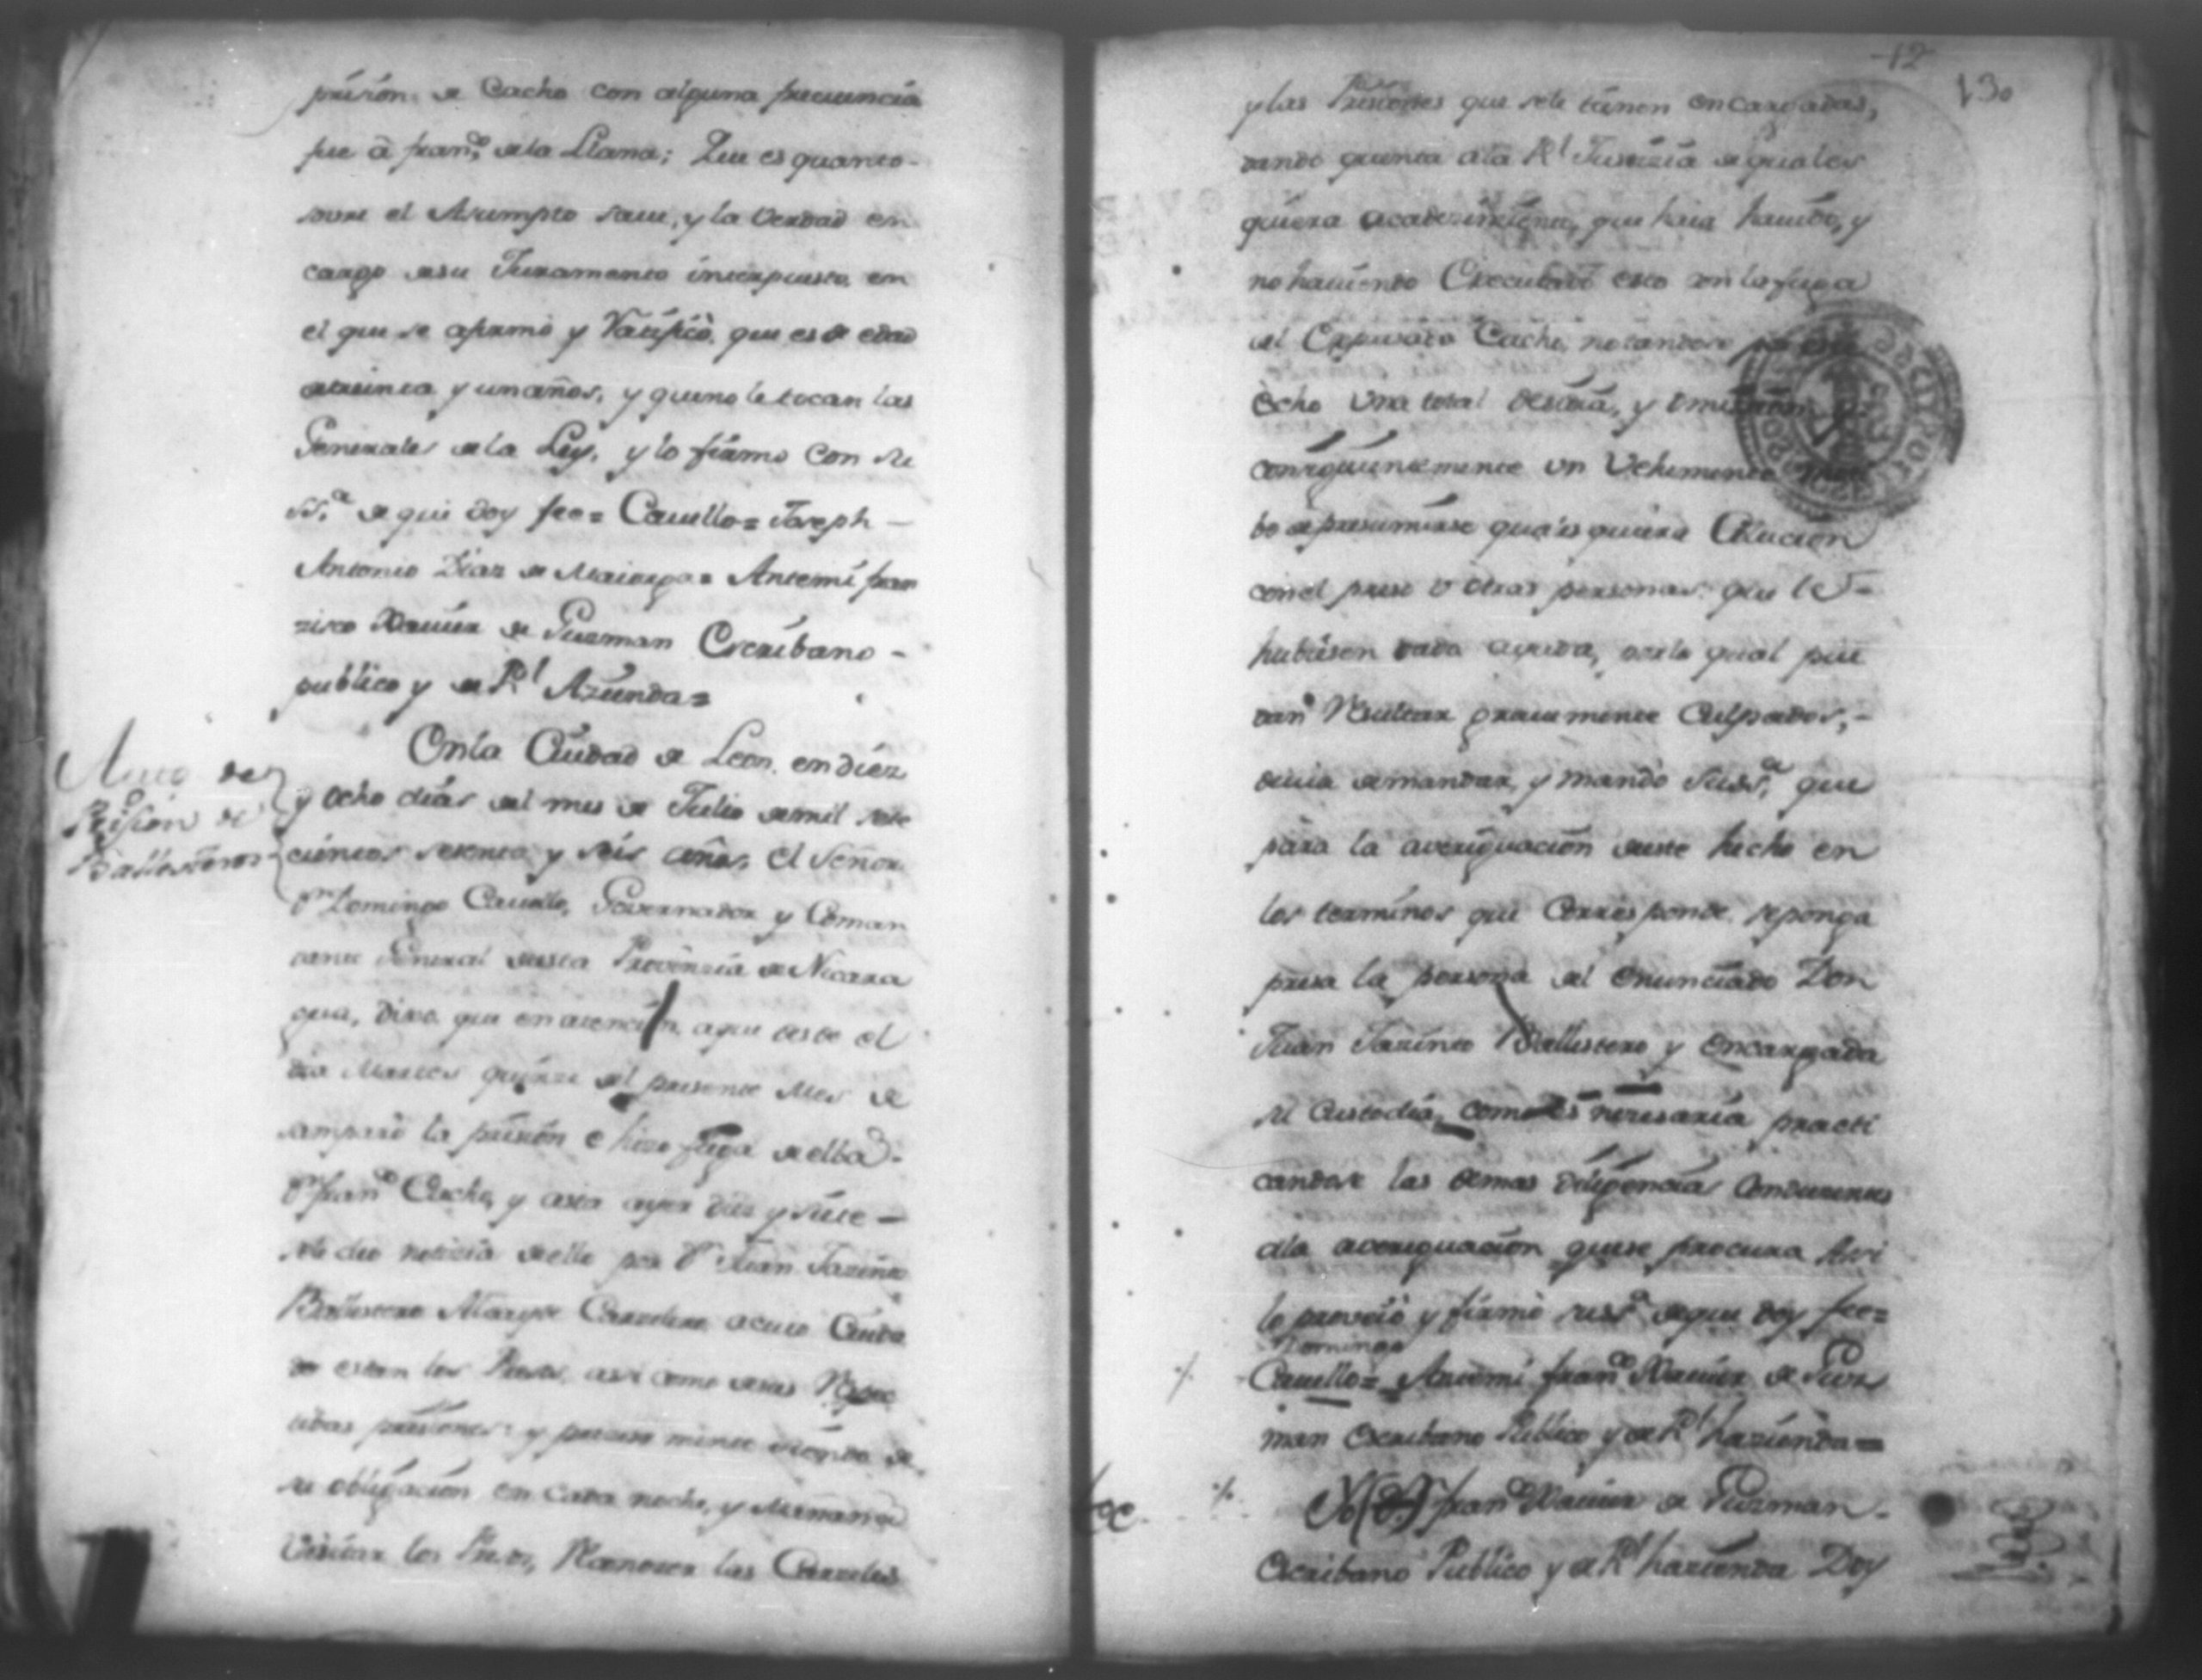 prision de Cacho con alguna frecuencia
fue â fran.co de la Llana; Que es quanto
sovre el Asumpto save, y la verdad en
cargo de su Juramento interpuesto, en
el que se afirmó y Ratificó, que es de edad
de treinta y un años, y que no le tocan las
Generales de la Ley, y lo firmo con su
SS.a de que doy fee = Cavello = Joseph
Antonio Diaz de Maiorga = Antemi fran
zisco Xavier de Guzman Escribano
publico y de Rl Azienda =
Auto de
Prision de
Ballesteros
En la Ciudad de Leon, en diez
y ocho dias del mes de Julio de mil sete
cientos setenta y seis años, El Señor
Dn Domingo Cavello, Governador y Coman
dante General desta Provinzia de Nicara
gua, Dixo que en atencion aque desde el
dia Martes quinze del presente Mes de
samparò la prision e hizo fuga de ella
Dn Fran.co Cacho, y asta ayer diez y siete
se le dio noticia de ello por Dn Juan Jazinto
Ballestero Alcayde Carzelero acuio Cuida
do estan los Presos, asi como de sus Respec
tibas prisiones: y siendo de
su obligacion en cada noche, y Mañana
Visitar los Presos, Reconocer las Carzeles
12
130
y las Prisiones que se le tienen encargadas,
dando quenta ala Rl Justizia de quales
quiera acaezimiento, que haia havido, y
no haviendo Execultado esto en la fuga
del Expresado Cacho, notandose por este
echo una total desidia, y omision
consiguientemente un Vehemente
bo de presumirse qualesquiera Colucion
con el preso ò otras personas que le
hubiesen dado ayuda, por lo qual pue
dan Resultar gravemente Culpados,
devia demandar, y mandò su SS.a que
para la averiguacion deste hecho en
los terminos que Corresponde se ponga
presa la persona del enunciado Don
Juan Jazinto Ballestero y encargada
su custodia, como es nezesaria practi
candose las demas diligencias Conducentes
ala averiguacion que se procura Asi
lo proveiò y firmò su SS.a de que doy fee =
Domingo
Cavello = Antemi fran.co Xavier de Guz
man Escribano Publico y de Rl hazienda =
Yo fran.co Xavier de Guzman
Escribano Publico y de Rl hazienda Doy